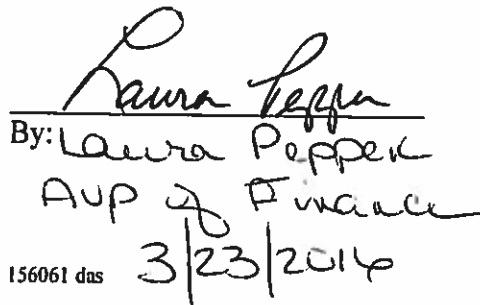 Laura Pepper
By: Laura Pepper
AVP of Finance
156061 das 3/23/2016